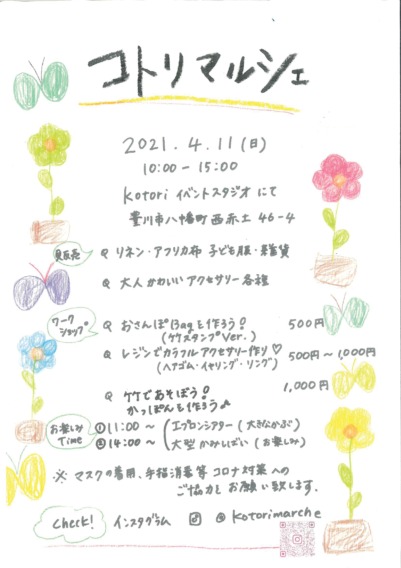 コトリマルシェ
2021.4.11(日)
10:00-15:00
Kotori イベントスタジオ にて
豊川市八幡町西赤土 46-4
物販売
リネン・アフリカ布 子ども服・雑貨
大人かわいいアクセサリー各種
ワークショップ
おさんぽBagを作ろう! 500円
(ケケスタンプVer.)
レジンでカラフルアクセサリー作り♡ 500円~1,000円
(ヘアゴム・イヤリング・リング)
ケケであそぼう! 1,000円
かっぽんを作ろう♪
お楽しみTime
①11:00~ エプロンシアター(大きなかぶ)
②14:00~ 大型かみしばい(お楽しみ)
※ マスクの着用、手指消毒等 コロナ対策への
ご協力を お願い致します。
Check! インスタグラム @kotorimarche